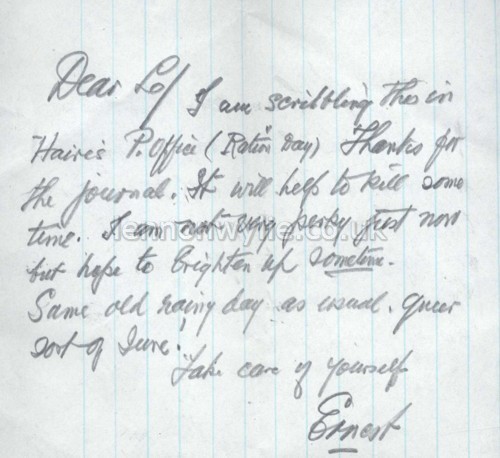 Dear Lo/ I am scribbling this in
Haire's P.Office (Ration Day) Thanks for
the journal. It will help to kill some
time. I am not very perky just now
lennonwylie.co.uk
but hope to brighten up sometime.
Same old rainy day as usual. queer
sort of June!
Take care of yourself
Ernest